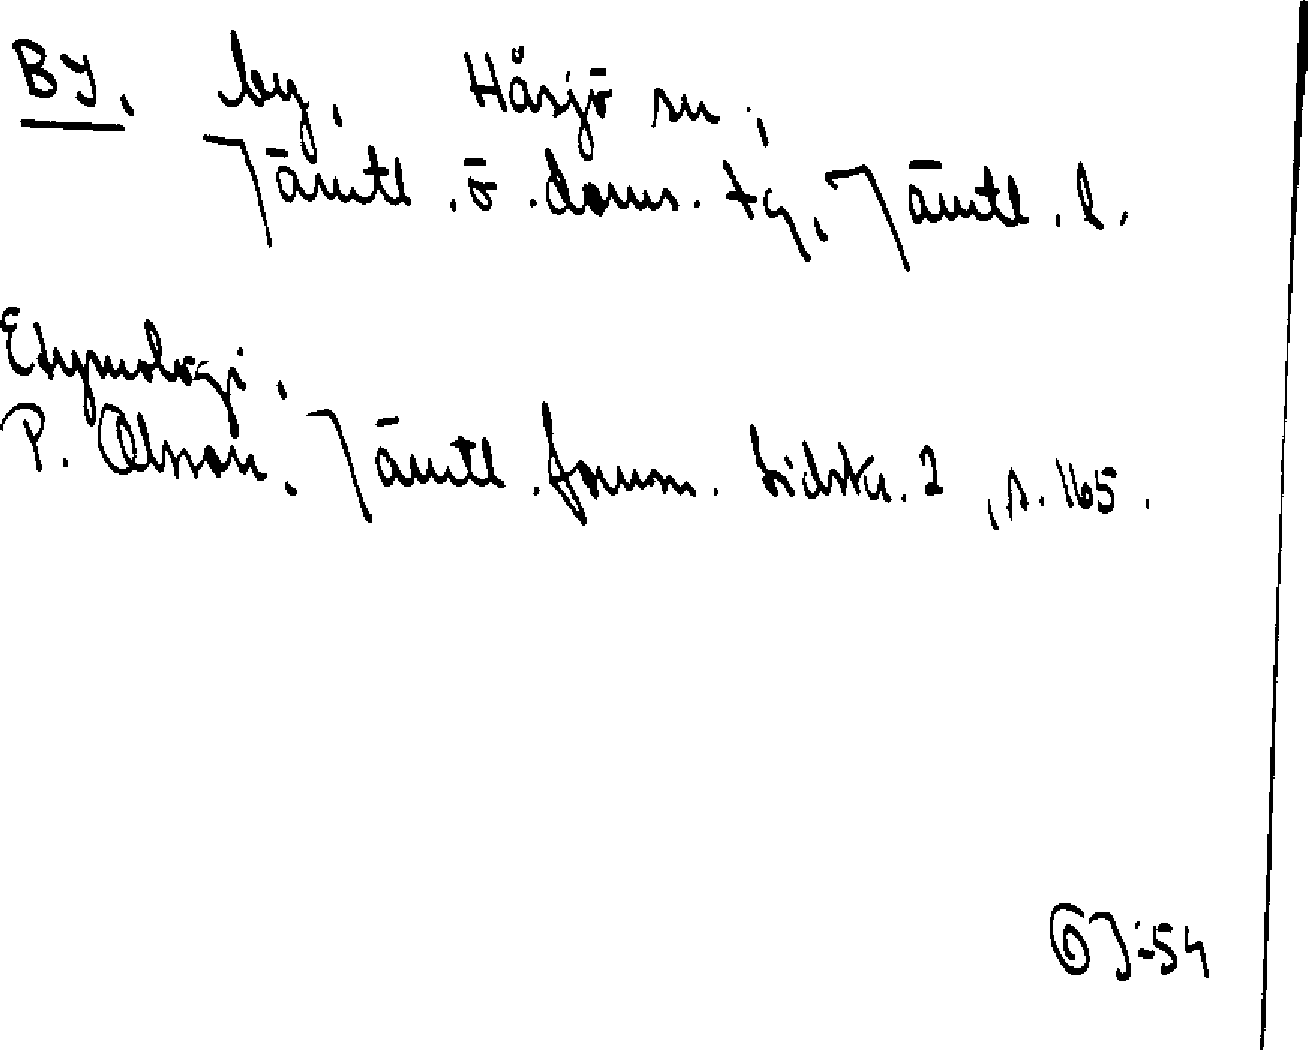 BY, by, Håsjö sn,
Jämtl. ö. doms. tg, Jämtl. l.
Etymologi.
P. Olsson, Jämtl. fornm. tidskr. 2, s. 165.
J-54